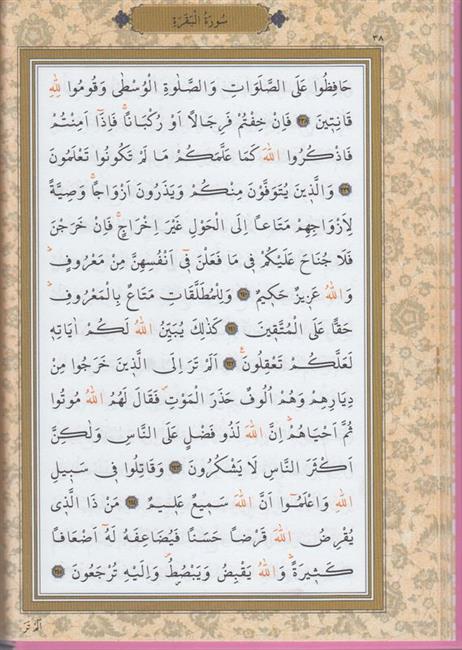 سُورَةُ الْبَقَرَةِ
٣٨
حَافِظُوا عَلَى الصَّلَوَاتِ وَالصَّلٰوةِ الْوُسْطٰى وَقُومُوا لِلّٰهِ
قَانِتٖينَ ﴿٢٣٨﴾ فَاِنْ خِفْتُمْ فَرِجَالًا اَوْ رُكْبَانًاۚ فَاِذَٓا اَمِنْتُمْ
فَاذْكُرُوا اللّٰهَ كَمَا عَلَّمَكُمْ مَا لَمْ تَكُونُوا تَعْلَمُونَ
﴿٢٣٩﴾ وَالَّذٖينَ يُتَوَفَّوْنَ مِنْكُمْ وَيَذَرُونَ اَزْوَاجًاۚ وَصِيَّةً
لِاَزْوَاجِهِمْ مَتَاعًا اِلَى الْحَوْلِ غَيْرَ اِخْرَاجٍۚ فَاِنْ خَرَجْنَ
فَلَا جُنَاحَ عَلَيْكُمْ فٖى مَا فَعَلْنَ فٖٓى اَنْفُسِهِنَّ مِنْ مَعْرُوفٍؕ
وَاللّٰهُ عَزٖيزٌ حَكٖيمٌ ﴿٢٤٠﴾ وَلِلْمُطَلَّقَاتِ مَتَاعٌ بِالْمَعْرُوفِؕ
حَقًّا عَلَى الْمُتَّقٖينَ ﴿٢٤١﴾ كَذٰلِكَ يُبَيِّنُ اللّٰهُ لَكُمْ اٰيَاتِهٖ
لَعَلَّكُمْ تَعْقِلُونَࣖ ﴿٢٤٢﴾ اَلَمْ تَرَ اِلَى الَّذٖينَ خَرَجُوا مِنْ
دِيَارِهِمْ وَهُمْ اُلُوفٌ حَذَرَ الْمَوْتِࣕ فَقَالَ لَهُمُ اللّٰهُ مُوتُوا
ثُمَّ اَحْيَاهُمْؕ اِنَّ اللّٰهَ لَذُو فَضْلٍ عَلَى النَّاسِ وَلٰكِنَّ
اَكْثَرَ النَّاسِ لَا يَشْكُرُونَ ﴿٢٤٣﴾ وَقَاتِلُوا فٖى سَبٖيلِ
اللّٰهِ وَاعْلَمُٓوا اَنَّ اللّٰهَ سَمٖيعٌ عَلٖيمٌ ﴿٢٤٤﴾ مَنْ ذَا الَّذٖى
يُقْرِضُ اللّٰهَ قَرْضًا حَسَنًا فَيُضَاعِفَهُ لَهُٓ اَضْعَافًا
كَثٖيرَةًؕ وَاللّٰهُ يَقْبِضُ وَيَبْصُۣطُࣕ وَاِلَيْهِ تُرْجَعُونَ ﴿٢٤٥﴾
اَلَمْ تَرَ